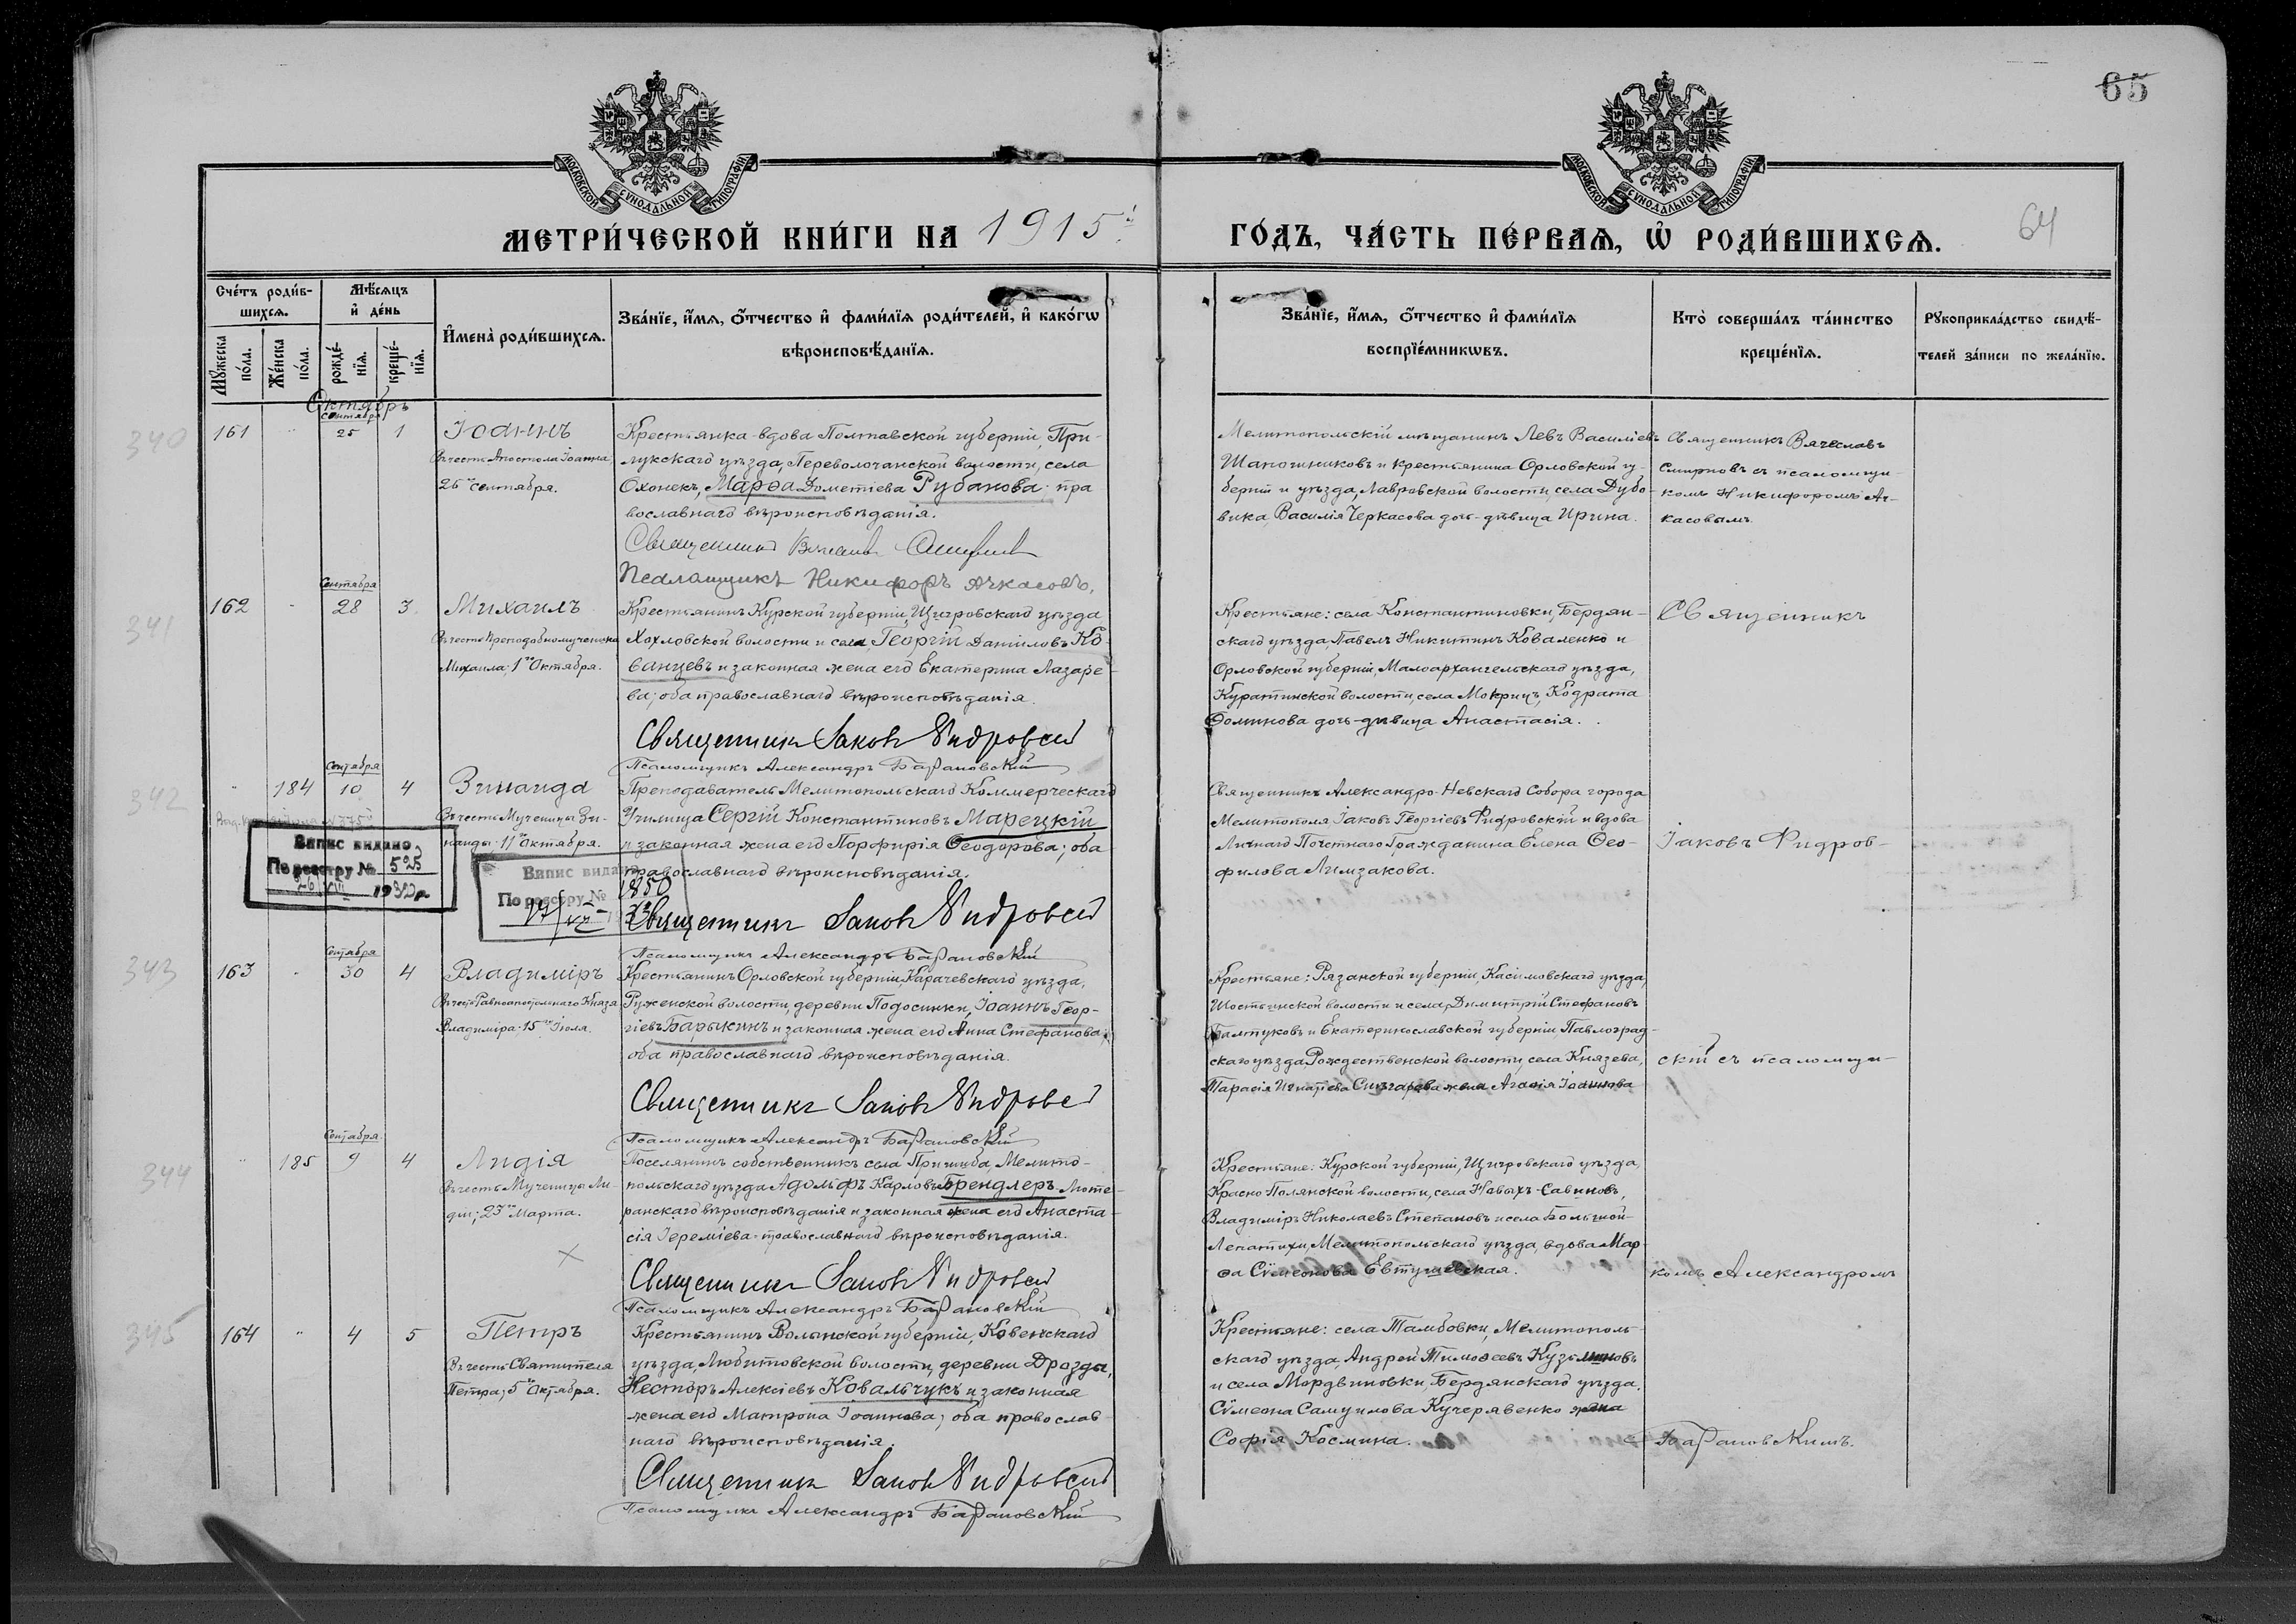 65
МОСКОВСКОЙ СУНОДАЛЬНОЙ ТИПОГРАФІИ
МОСКОВСКОЙ СУНОДАЛЬНОЙ ТИПОГРАФІИ
МЕТРИ́ЧЕСКОЙ КНИ́ГИ НА 1915й
ГО́ДЪ, ЧА́СТЬ ПЕ́РВАѦ, Ѽ РОДИ́ВШИХСѦ.
64
Сче́тъ роди́в-
шихсѧ.
Мꙋ́жеска по́ла.
Же́нска по́ла.
Мѣ́сѧцъ
и҆ де́нь
рожде́-
нїѧ.
креще́-
нїѧ.
И҆мена̀ роди́вшихсѧ.
Зва́нїе, и҆́мѧ, ѻ҆́тчество и҆ фами́лїѧ роди́телей, и҆ како́гѡ
вѣроисповѣ́данїѧ.
Зва́нїе, и҆́мѧ, ѻ҆́тчество и҆ фами́лїѧ
воспрїе́мникѡвъ.
Кто̀ соверша́лъ та́инство
креще́нїѧ.
Рꙋкоприкла́дство свидѣ́-
телей за́писи по жела́нїю.
Октябрь
340
161
"
сентября
25
1
Іоаннъ
Въ честь Апостола Іоанна
26го сентября.
Крестьянка-вдова Полтавской губерніи, При-
лукскаго уѣзда, Переволочанской волости, села
Охонекъ, Марѳа Дометіева Рубанова; пра
вославнаго вѣроисповѣданія.
Священникъ Вячеславъ Смирновъ
Псаломщикъ Никифоръ Ачкасовъ.
Мелитопольскій мѣщанинъ Левъ Василіевъ
Шапошниковъ и крестьянина Орловской гу-
берніи и уѣзда, Лавровской волости, села Дубо-
вика, Василія Черкасова дочь-дѣвица Ирина.
Священникъ Вячеславъ
Смирновъ съ псаломщи-
комъ Никифоромъ Ач-
касовымъ.
341
162
"
Сентября
28
3
Михаилъ
Въ честь Преподобномученика
Михаила; 1го Октября.
Крестьянинъ Курской губерніи, Щигровскаго уѣзда
Хохловской волости и села, Георгій Даніиловъ Ко-
ванцевъ и законная жена его Екатерина Лазаре-
ва; оба православнаго вѣроисповѣданія.
Священникъ Іаковъ Фидровскій
Псаломщикъ Александръ Барановскій
Крестьяне: села Константиновки, Бердян-
скаго уѣзда, Павелъ Никитинъ Коваленко и
Орловской губерніи, Малоархангельскаго уѣзда,
села Мокрицъ, Кодрата
Фоминова дочь-дѣвица Анастасія.
Священникъ
342
"
184
Сентября
10
4
Зинаида
Въ честь Мученицы Зи-
наиды; 11го Октября.
Преподаватель Мелитопольскаго Коммерческаго
Училища Сергій Константиновъ Марецкій
и законная жена его Порфирія Ѳеодорова; оба
православнаго вѣроисповѣданія.
Священникъ Іаковъ Фидровскій
Псаломщикъ Александръ Барановскій
Священникъ Александро-Невскаго Собора города
Мелитополя Іаковъ Георгіевъ Фидровскій и вдова
Личнаго Почетнаго Гражданина Елена Ѳео-
филова Лимзакова.
Іаковъ Фидров-
Випис видано
По реєстру № 525
Випис видано
По реєстру № 1850
343
163
"
Сентября
30
4
Владиміръ
Въ честь Равноапостольнаго Князя
Владиміра; 15го Іюля.
Крестьянинъ Орловской губерніи, Карачевскаго уѣзда,
Руженской волости, деревни Подосинки, Іоаннъ Геор-
гіевъ Барыкинъ и законная жена его Анна Стефанова;
оба православнаго вѣроисповѣданія.
Священникъ Іаковъ Фидровскій
Псаломщикъ Александръ Барановскій
Крестьяне: Рязанской губерніи, Касимовскаго уѣзда,
Шостьинской волости и села, Димитрій Стефановъ
и Екатеринославской губерніи, Павлоград-
скаго уѣзда Рождественской волости, села Князева,
Тарасія Игнатіева жена Агаѳія Іоаннова
скій съ псаломщи-
344
"
185
Сентября
9
4
Лидія
Въ честь Мученицы Ли-
діи; 23го Марта.
Поселянинъ собственникъ села Пришиба, Мелито-
польскаго уѣзда Адольфъ Карловъ Брендлеръ-Люте-
ранскаго вѣроисповѣданія и законная жена его Анаста-
сія Іереміева-православнаго вѣроисповѣданія.
Священникъ Іаковъ Фидровскій
Псаломщикъ Александръ Барановскій
Крестьяне: Курской губерніи, Щигровскаго уѣзда,
Красно Полянской волости, села Новыхъ-Савиновъ,
Владиміръ Николаевъ Степановъ и села Большой-
Лепатихи, Мелитопольскаго уѣзда, вдова Мар-
ѳа Сѵмеонова Евтушевская.
комъ Александромъ
345
164
"
4
5
Петръ
Въ честь Святителя
Петра; 5го Октября.
Крестьянинъ Волынской губерніи, Ковельскаго
уѣзда, Любитовской волости, деревни Дрозды,
Несторъ Алексіевъ Ковальчукъ и законная
жена его Матрона Іоаннова; оба православ-
наго вѣроисповѣданія.
Священникъ Іаковъ Фидровскій
Псаломщикъ Александръ Барановскій
Крестьяне: села Тамбовки, Мелитополь-
скаго уѣзда, Андрей Тимоѳеевъ Кузьминовъ
и села Мордвиновки, Бердянскаго уѣзда,
Сѵмеона Самуилова Кучерявенко жена
Софія Космина.
Барановскимъ.